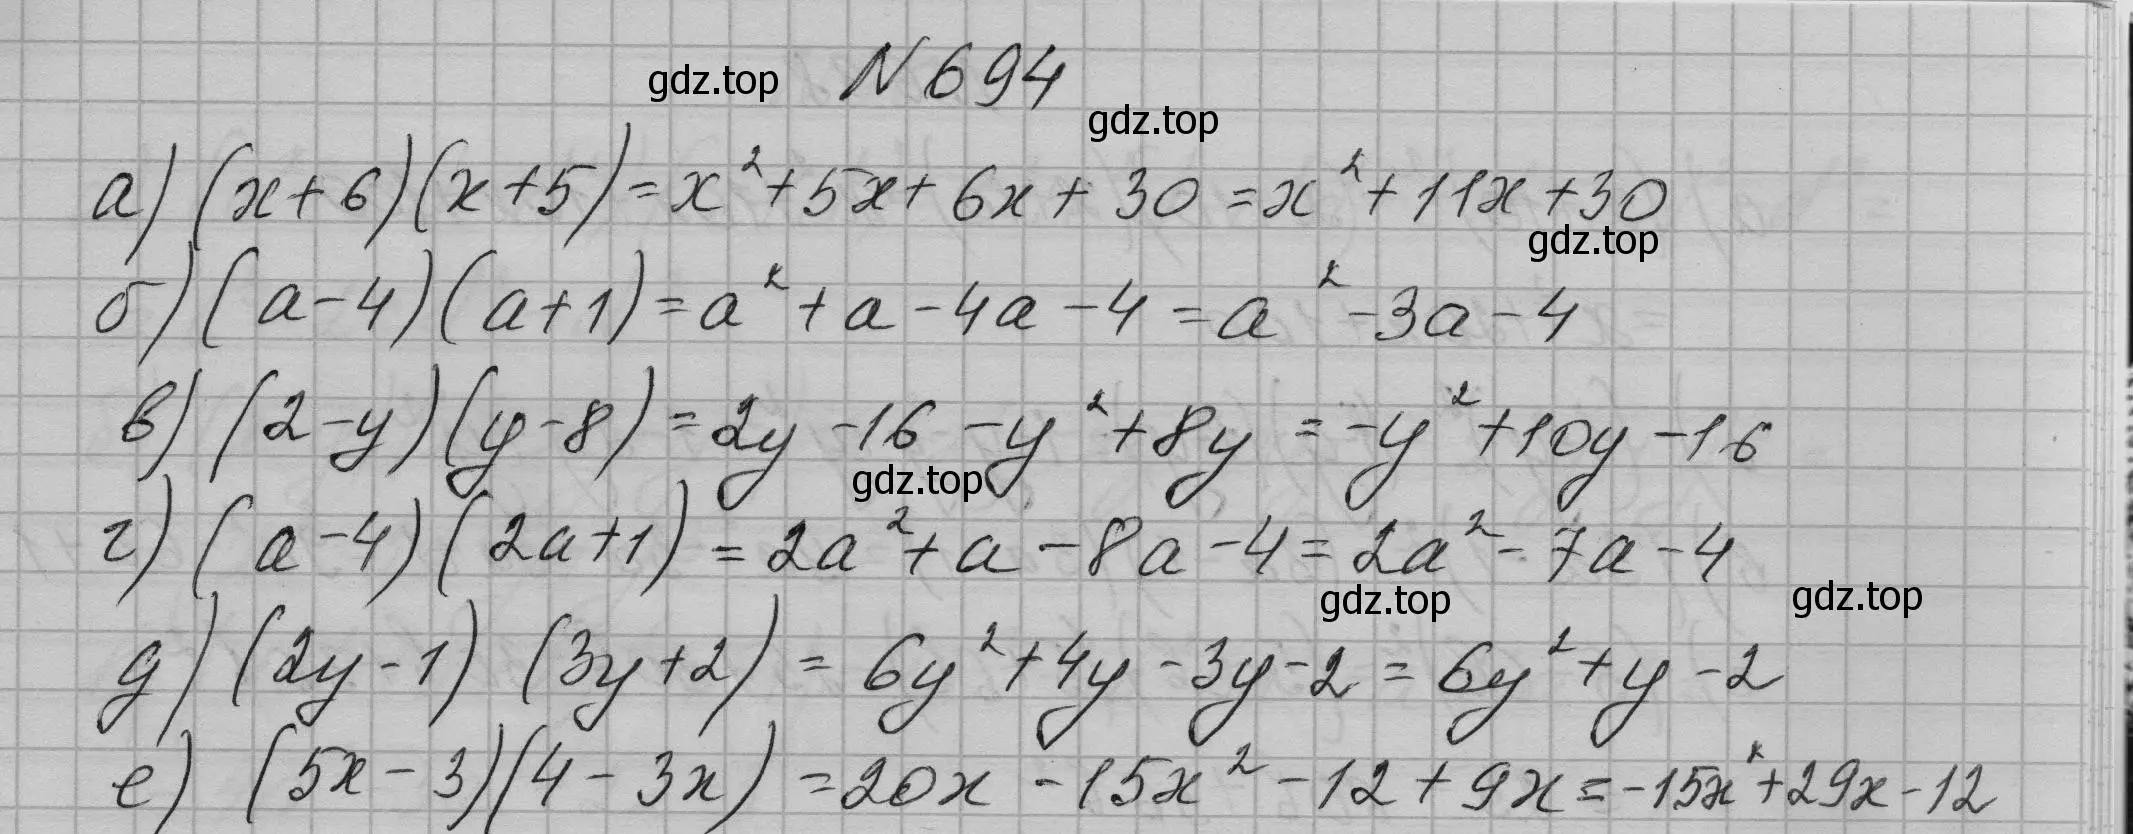 gdz.top N694
gdz.top
а) (x+6)(x+5)=x²+5x+6x+30=x²+11x+30
gdz.top
б) (a-4)(a+1)=a²+a-4a-4=a²-3a-4
в) (2-y)(y-8)=2y-16-y²+8y=-y²+10y-16
gdz.top
г) (a-4)(2a+1)=2a²+a-8a-4=2a²-7a-4
gdz.top gdz.top
д) (2y-1)(3y+2)=6y²+4y-3y-2=6y²+y-2
е) (5x-3)(4-3x)=20x-15x²-12+9x=-15x²+29x-12